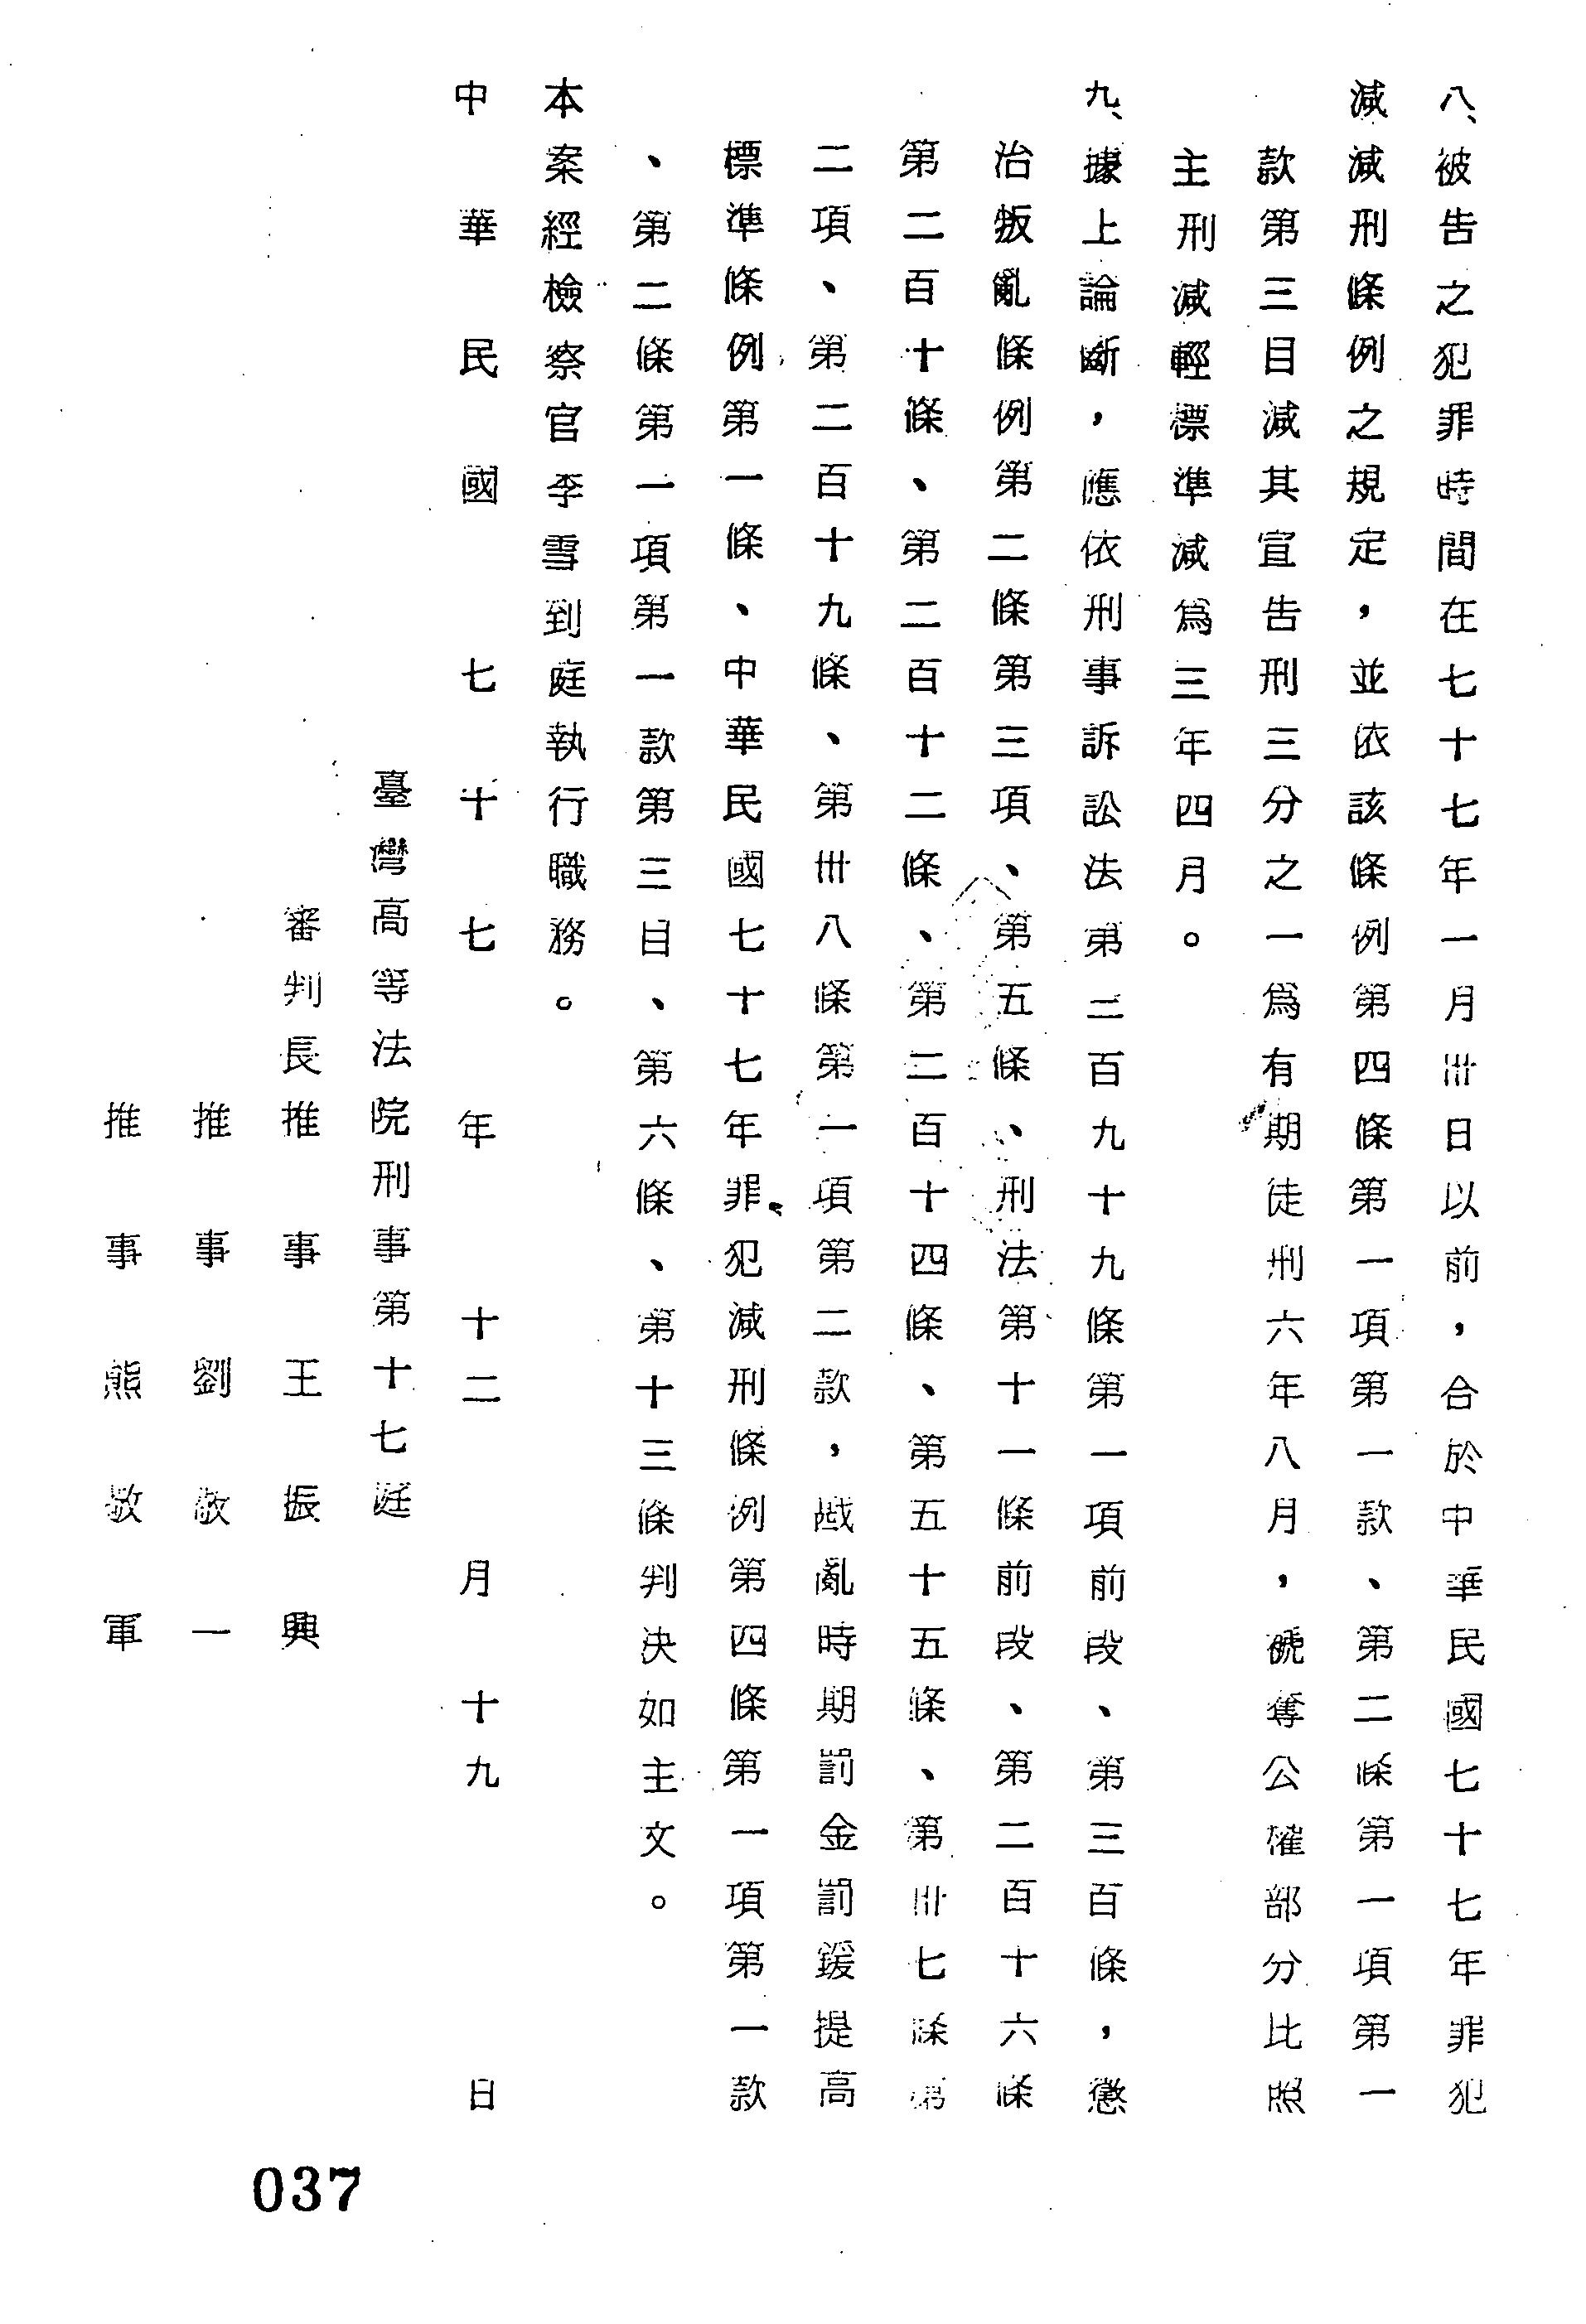 八、被告之犯罪時間在七十七年一月卅日以前，合於中華民國七十七年罪犯
減減刑條例之規定，並依該條例第四條第一項第一款、第二條第一項第一
款第三目減其宣告刑三分之一爲有期徒刑六年八月，褫奪公權部分比照
主刑減輕標準減爲三年四月。
九、據上論斷，應依刑事訴訟法第二百九十九條第一項前段、第三百條，懲
治叛亂條例第二條第三項、第五條、刑法第十一條前段、第二百十六條
第二百十條、第二百十二條、第二百十四條、第五十五條、第卅七條第
二項、第二百十九條、第卅八條第一項第二款，戡亂時期罰金罰鍰提高
標準條例第一條、中華民國七十七年罪犯減刑條例第四條第一項第一款
、第二條第一項第一款第三目、第六條、第十三條判決如主文。
本案經檢察官李雪到庭執行職務。
中華民國七十七年十二月十九日
臺灣高等法院刑事第十七庭
審判長推事王振興
推事劉敬一
推事熊敬軍
037